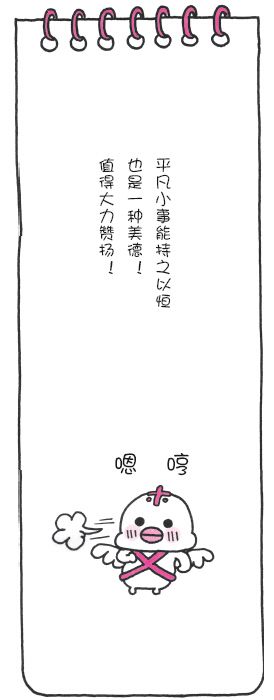 平凡小事能持之以恒
也是一种美德！
值得大力赞扬！
嗯 哼